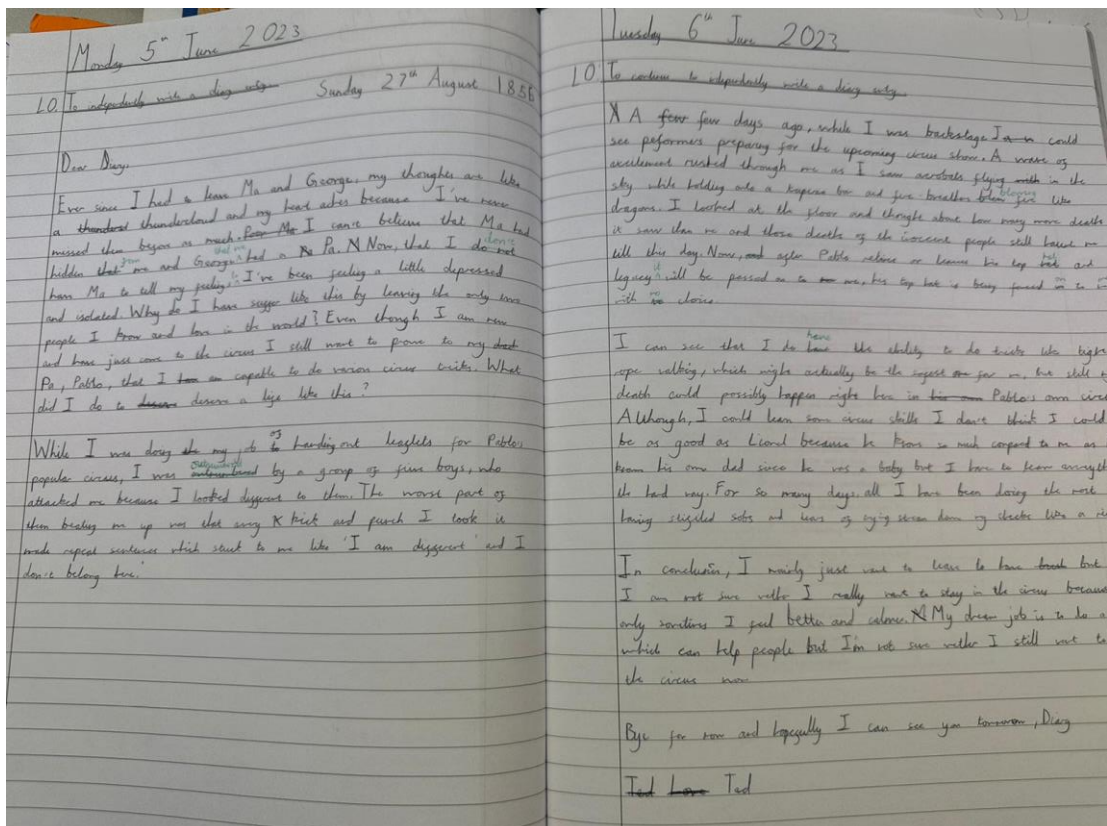 Monday 5th June 2023
LO: To independently write a diary entry
Sunday 27th August 1856
Dear Diary,
Ever since I had to leave Ma and George, my thoughts are like
a thundercloud and my heart aches because I've never
missed them before as much. I can't believe that Ma had
hidden that from me and George that we had a Pa. Now, that I don't
have Ma to tell my feelings, I've been feeling a little depressed
and isolated. Why do I have suffer like this by leaving the only two
people I know and love in the world? Even though I am new
and have just come to the circus I still want to prove to my
Pa, Pablo, that I am capable to do various circus tricks. What
did I do to deserve a life like this?
While I was doing my job of handing out leaflets for Pablo's
popular circus, I was by a group of five boys, who
attacked me because I looked different to them. The worst part of
them beating me up was that every kick and punch I took it
made repeat sentences which stuck to me like 'I am different' and I
don't belong here.'
Tuesday 6th June 2023
LO: To continue to independently write a diary entry
A few days ago, while I was backstage I could
see peformers preparing for the upcoming circus show. A wave of
excitement rushed through me as I saw acrobats flying in the
sky while holding onto a trapeze bar and fire breathers blowing fire like
dragons. I looked at the floor and thought about how many more deaths
it saw than me and those deaths of the innocent people still haunt me
till this day. Now, after Pablo retires or leaves his top hat and
legacy it will be passed on to me, his top hat is being forced on to
with no choice.
I can see that I do have the ability to do tricks like tight
rope walking, which might actually be the safest for me, but still
death could possibly happen right here in Pablo's own
Although, I could learn some circus skills I don't think I could
be as good as Lionel because he knows so much compared to me as
his own dad since he was a baby but I have to learn
the hard way. For so many days, all I have been doing the most
having stifled sobs and tears of crying stream down my cheeks like a
In conclusion, I mainly just want to leave to have but
I am not sure wether I really want to stay in the circus because
only sometimes I feel better and calmer. My dream job is to do a
which can help people but I'm not sure wether I still want to
the circus now
Bye for now and hopefully I can see you tomorrow, Diary
Ted